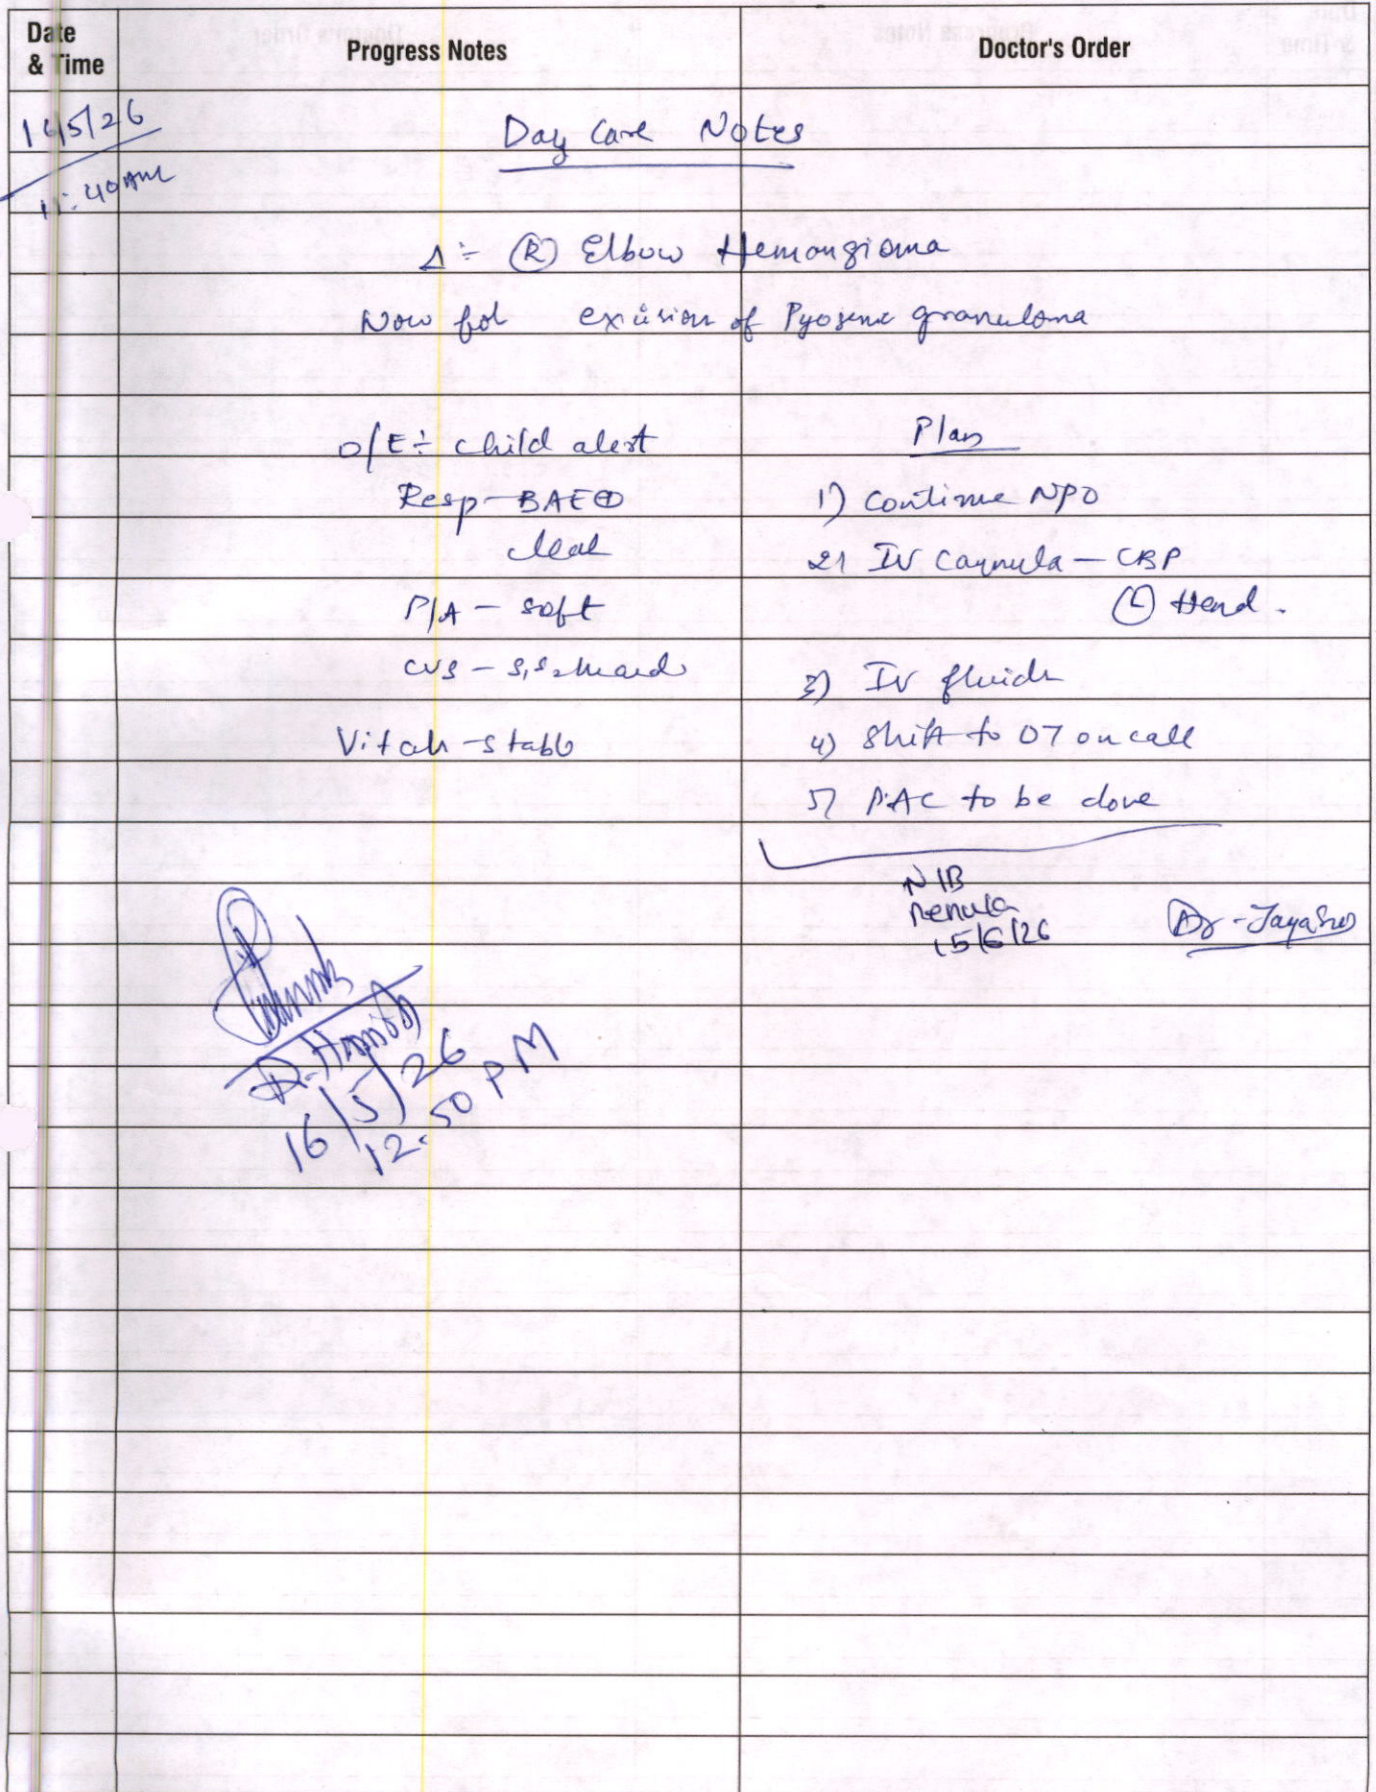 Date & Time
Progress Notes
Doctor's Order
11:40AM
Day Care Notes
Δ:- (R) Elbow Hemangioma
Now for excision of Pyogenic granuloma
O/E:- Child alert
Resp - BAE⊕
clear
P/A - soft
CVS - S1S2 heard
Vitals - stable
Plan
1) Continue NPO
2) IV Cannula - CBP
(L) Hand.
3) IV fluids
4) Shift to OT on call
5) PAC to be done
15/5/26
16/5/26
12.50 PM